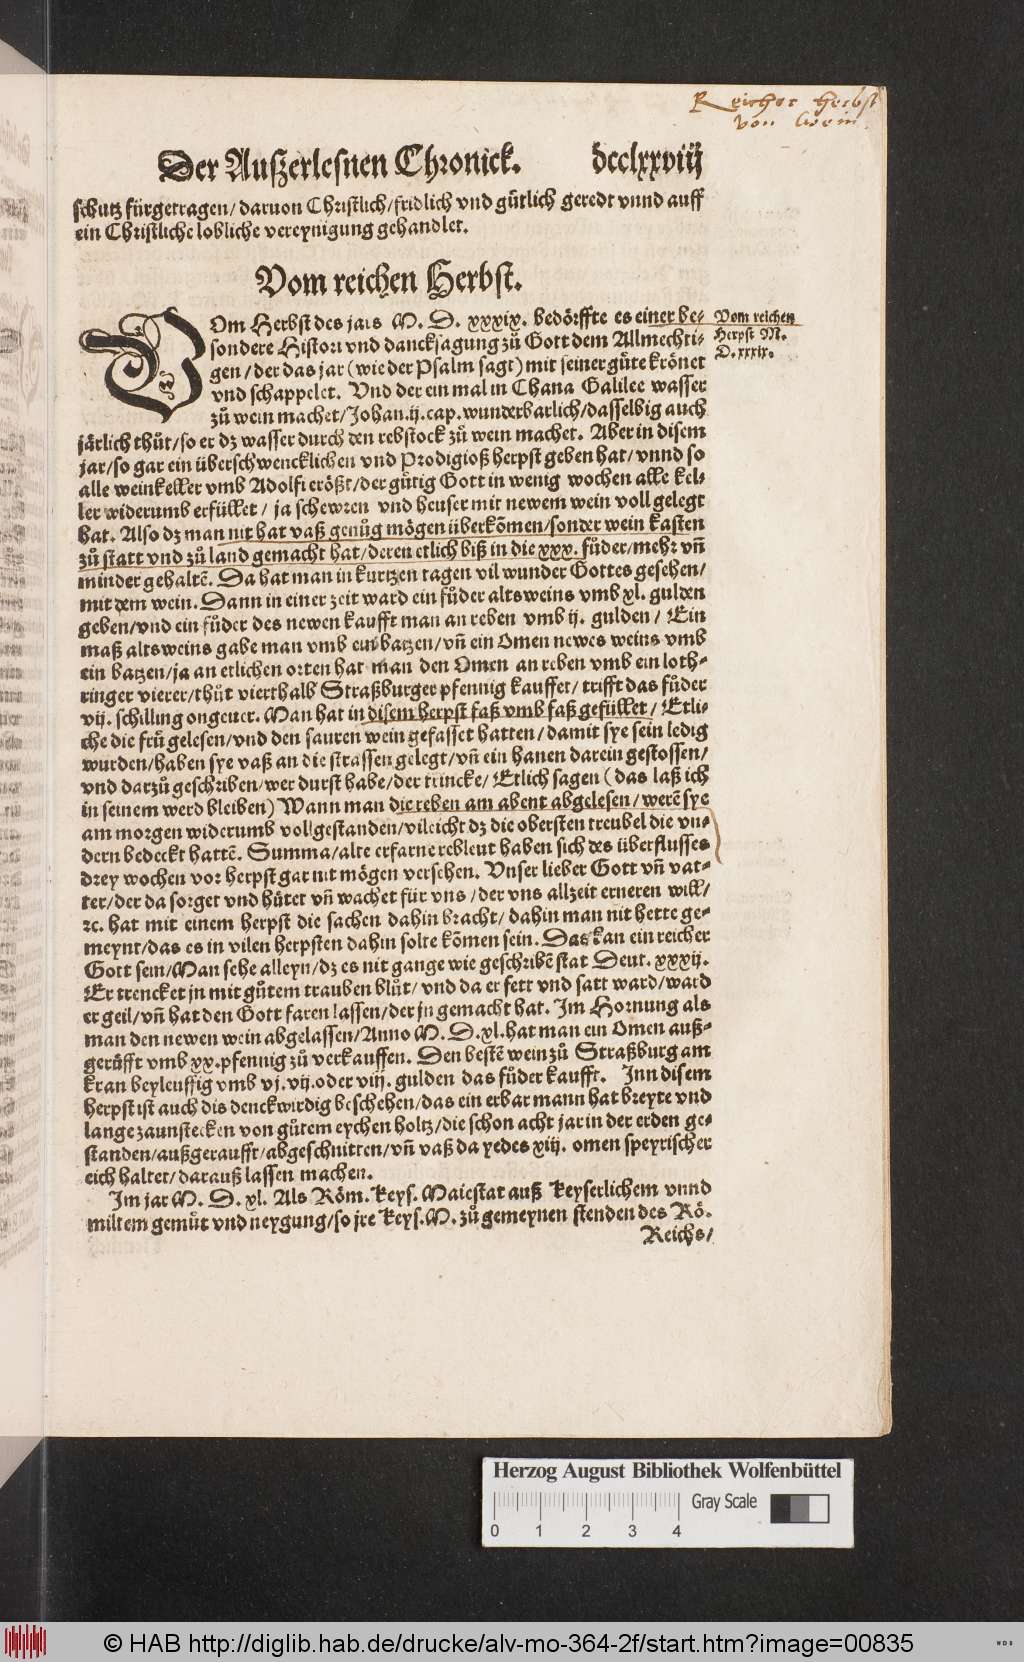 Reicher Herbst
von Wein.
Der Außerlesnen Chronick. dcclxxviij
schutz fürgetragen/ daruon Christlich/ fridlich vnd gütlich geredt vnnd auff
ein Christliche lobliche vereynigung gehandlet.
Vom reichen Herbst.
VOm Herbst des jars M. D. xxxix. bedörffte es einer be-
sondere Histori vnd dancksagung zů Gott dem Allmechti-
gen/ der das jar (wie der Psalm sagt) mit seiner güte krönet
vnd schappelet. Vnd der ein mal in Chana Galilee wasser
zů wein machet/ Johan. ij. cap. wunderbarlich/ dasselbig auch
järlich thůt/ so er dz wasser durch den rebstock zů wein machet. Aber in disem
jar/ so gar ein überschwencklichen vnd Prodigioß herpst geben hat/ vnnd so
alle weinkeller vmb Adolfi erößt/ der gütig Gott in wenig wochen alle kel-
ler widerumb erfüllet / ja schewren vnd heuser mit newem wein voll gelegt
hat. Also dz man nit hat vaß genůg mögen überkõmen/ sonder wein kasten
zů statt vnd zů land gemacht hat/ deren etlich biß in die xxx. fůder/ mehr vñ
minder gehaltẽ. Da hat man in kurtzen tagen vil wunder Gottes gesehen/
mit dem wein. Dann in einer zeit ward ein fůder altsweins vmb xl. gulden
geben/ vnd ein fůder des newen kaufft man an reben vmb ij. gulden / Ein
maß altsweins gabe man vmb ein batzen/ vñ ein Omen newes weins vmb
ein batzen/ ja an etlichen orten hat man den Omen an reben vmb ein loth-
ringer vierer/ thůt vierthalb Straßburger pfennig kauffet/ trifft das fůder
vij. schilling ongeuer. Man hat in disem herpst faß vmb faß gefüllet/ Etli-
che die frů gelesen/ vnd den sauren wein gefasset hatten/ damit sye sein ledig
wurden/ haben sye vaß an die strassen gelegt/ vñ ein hanen darein gestossen/
vnd darzů geschriben/ wer durst habe/ der trincke/ Etlich sagen (das laß ich
in seinem werd bleiben) Wann man die reben am abent abgelesen/ werẽ sye
am morgen widerumb voll gestanden/ vileicht dz die obersten treubel die vn-
dern bedeckt hattẽ. Summa/ alte erfarne rebleut haben sich des überflusses
drey wochen vor herpst gar nit mögen versehen. Vnser lieber Gott vñ vat-
ter/ der da sorget vnd hůtet vñ wachet für vns / der vns allzeit erneren will/
zc. hat mit einem herpst die sachen dahin bracht/ dahin man nit hette ge-
meynt/ das es in vilen herpsten dahin solte kõmen sein. Das kan ein reicher
Gott sein/ Man sehe alleyn/ dz es nit gange wie geschribẽ stat Deut. xxxij.
Er trencket jn mit gůtem trauben blůt/ vnd da er fett vnd satt ward/ ward
er geil/ vñ hat den Gott faren lassen/ der jn gemacht hat. Im Hornung als
man den newen wein abgelassen/ Anno M. D. xl. hat man ein Omen auß-
gerüfft vmb xx. pfennig zů verkauffen. Den bestẽ wein zů Straßburg am
kran beyleuffig vmb vj. vij. oder viij. gulden das fůder kaufft. Inn disem
herpst ist auch dis denckwirdig beschehen/ das ein erbar mann hat breyte vnd
lange zaunstecken von gůtem eychen holtz/ die schon acht jar in der erden ge-
standen/ außgeraufft/ abgeschnitten/ vñ vaß da yedes xiij. omen speyrischer
eich haltet/ darauß lassen machen.
Im jar M. D. xl. Als Röm. Keys. Maiestat auß Keyserlichem vnnd
miltem gemůt vnd neygung/ so jre Keys. M. zů gemeynen stenden des Rö.
Reichs/
Vom reichen
Herpst M.
D. xxxix.
Herzog August Bibliothek Wolfenbüttel
0 1 2 3 4
Gray Scale
© HAB http://diglib.hab.de/drucke/alv-mo-364-2f/start.htm?image=00835